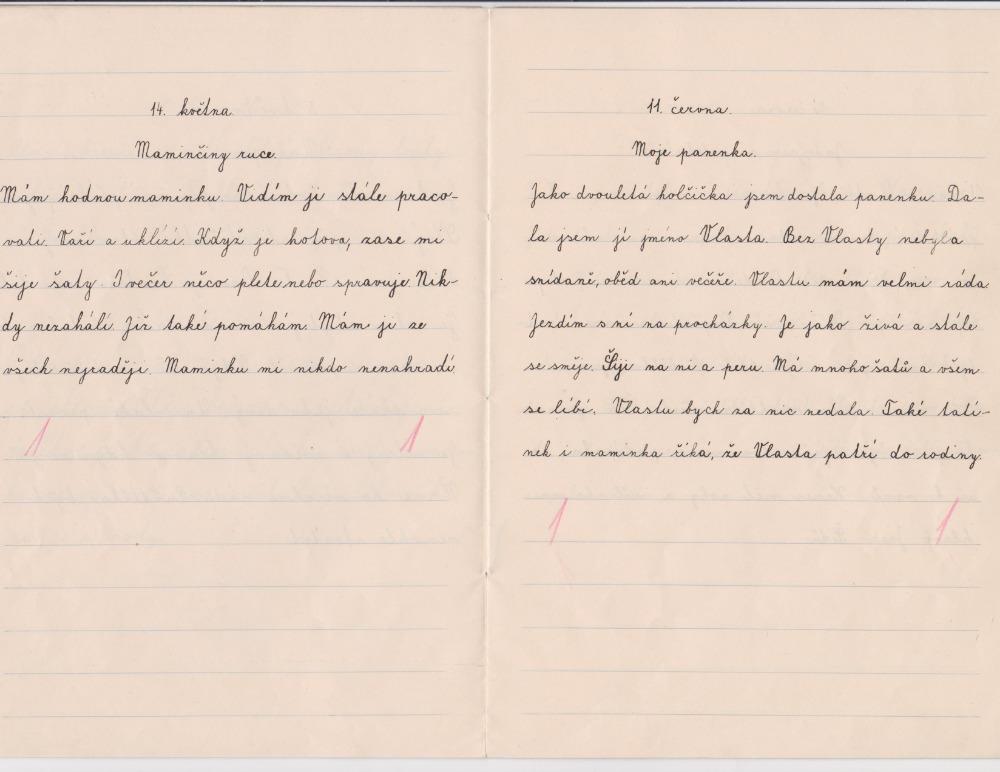 14. května.
Maminčiny ruce.
Mám hodnou maminku. Vidím ji stále praco-
vati. Vaří a uklízí. Když je hotova, zase mi
šije šaty. I večer něco plete nebo spravuje. Nik-
dy nezahálí. Již také pomáhám. Mám ji ze
všech nejraději. Maminku mi nikdo nenahradí.
1 1
11. června.
Moje panenka.
Jako dvouletá holčička jsem dostala panenku. Da-
la jsem jí jméno Vlasta. Bez Vlasty nebyla
snídaně, oběd ani večeře. Vlastu mám velmi ráda.
Jezdím s ní na procházky. Je jako živá a stále
se směje. Šiji na ni a peru. Má mnoho šatů a všem
se líbí. Vlastu bych za nic nedala. Také tatí-
nek i maminka říká, že Vlasta patří do rodiny.
1 1